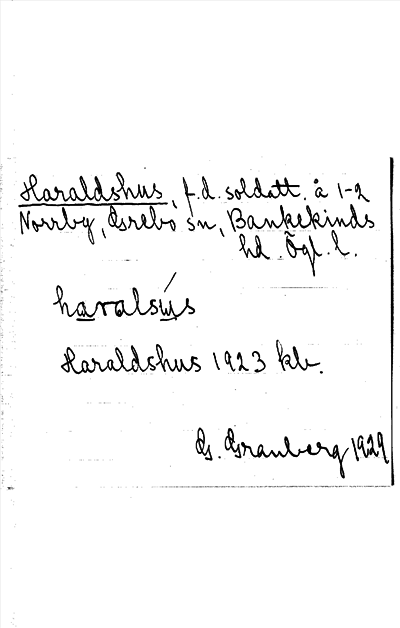 Haraldshus, f.d. soldatt. å 1-2
Norrby, Grebo sn, Bankekinds
hd. Ögl. l.
haralsús
Haraldshus 1923 kb.
G. Granberg 1929